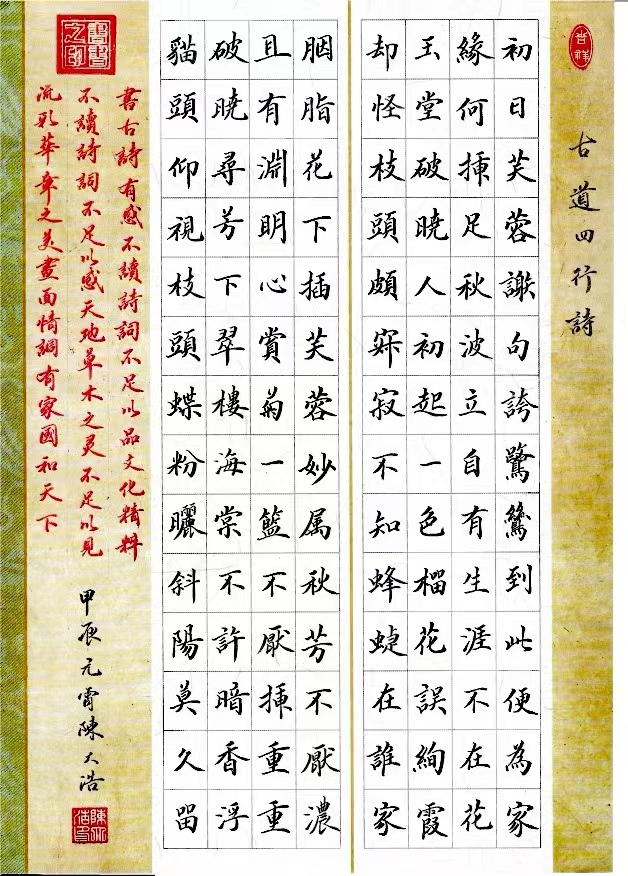 吉祥
古道四行詩
初日芙蓉謝句誇鷺鷥到此便為家
緣何揷足秋波立自有生涯不在花
玉堂破曉人初起一色榴花誤絢霞
却怪枝頭頗寂寂不知蜂蜨在誰家
胭脂花下插芙蓉妙属秋芳不厭濃
且有淵明心賞菊一籃不厭揷重重
破曉尋芳下翠樓海棠不許暗香浮
貓頭仰視枝頭蝶粉曬斜陽莫久留
書古詩有感不讀詩詞不足以品文化精粹
不讀詩詞不足以感天地草木之灵不足以見
流彩華章之美畫面情調有家國和天下
甲辰元宵陳大浩